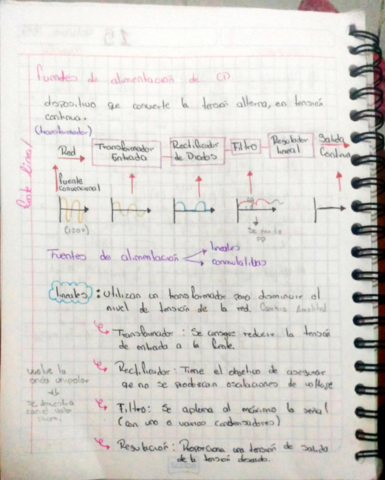 Fuentes de alimentación de CD
dispositivo que convierte la tensión alterna, en tensión
continua.
(transformador)
Red
Transformador
Entrada
Rectificador
de Diodos
Filtro
Regulador
lineal
Salida
Continua
fuente lineal
fuente
convencional
(120V)
Fuentes de alimentación
lineales
conmutadas
Lineales: Utilizan un transformador para disminuir el
nivel de tensión de la red.
Transformador: Se consigue reducir la tensión
de entrada a la fuente.
Rectificador: Tiene el objetivo de asegurar
que no se produzcan oscilaciones de voltaje
Filtro: Se aplana al máximo la señal
(con uno o varios condensadores)
Regulación: Proporciona una tensión de salida
de la tensión deseada.
vuelve la
onda unipolar